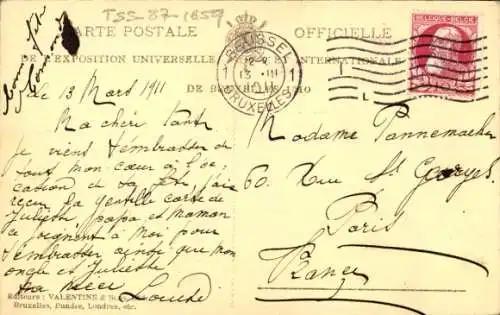 TSS-87-1859
CARTE POSTALE OFFICIELLE
DE L'EXPOSITION UNIVERSELLE ET INTERNATIONALE
DE BRUXELLES 1910
BRUSSEL
1 13 III 1
BRUXELLES
BELGIQUE-BELGIË
L
Le 13 Mars 1911
Ma chère Tante
je viens t'embrasser de
tout mon cœur à l'oc-
casion de ta fête, j'ai
reçu la gentille carte de
Juliette papa et maman
se joignent à moi pour
t'embrasser ainsi que mon
oncle et Juliette
ta nièce
Louise
Madame Pannemaeker
60. Rue St Georges
Paris
France
Editeurs: VALENTINE &
Bruxelles, Dundee, Londres, etc.